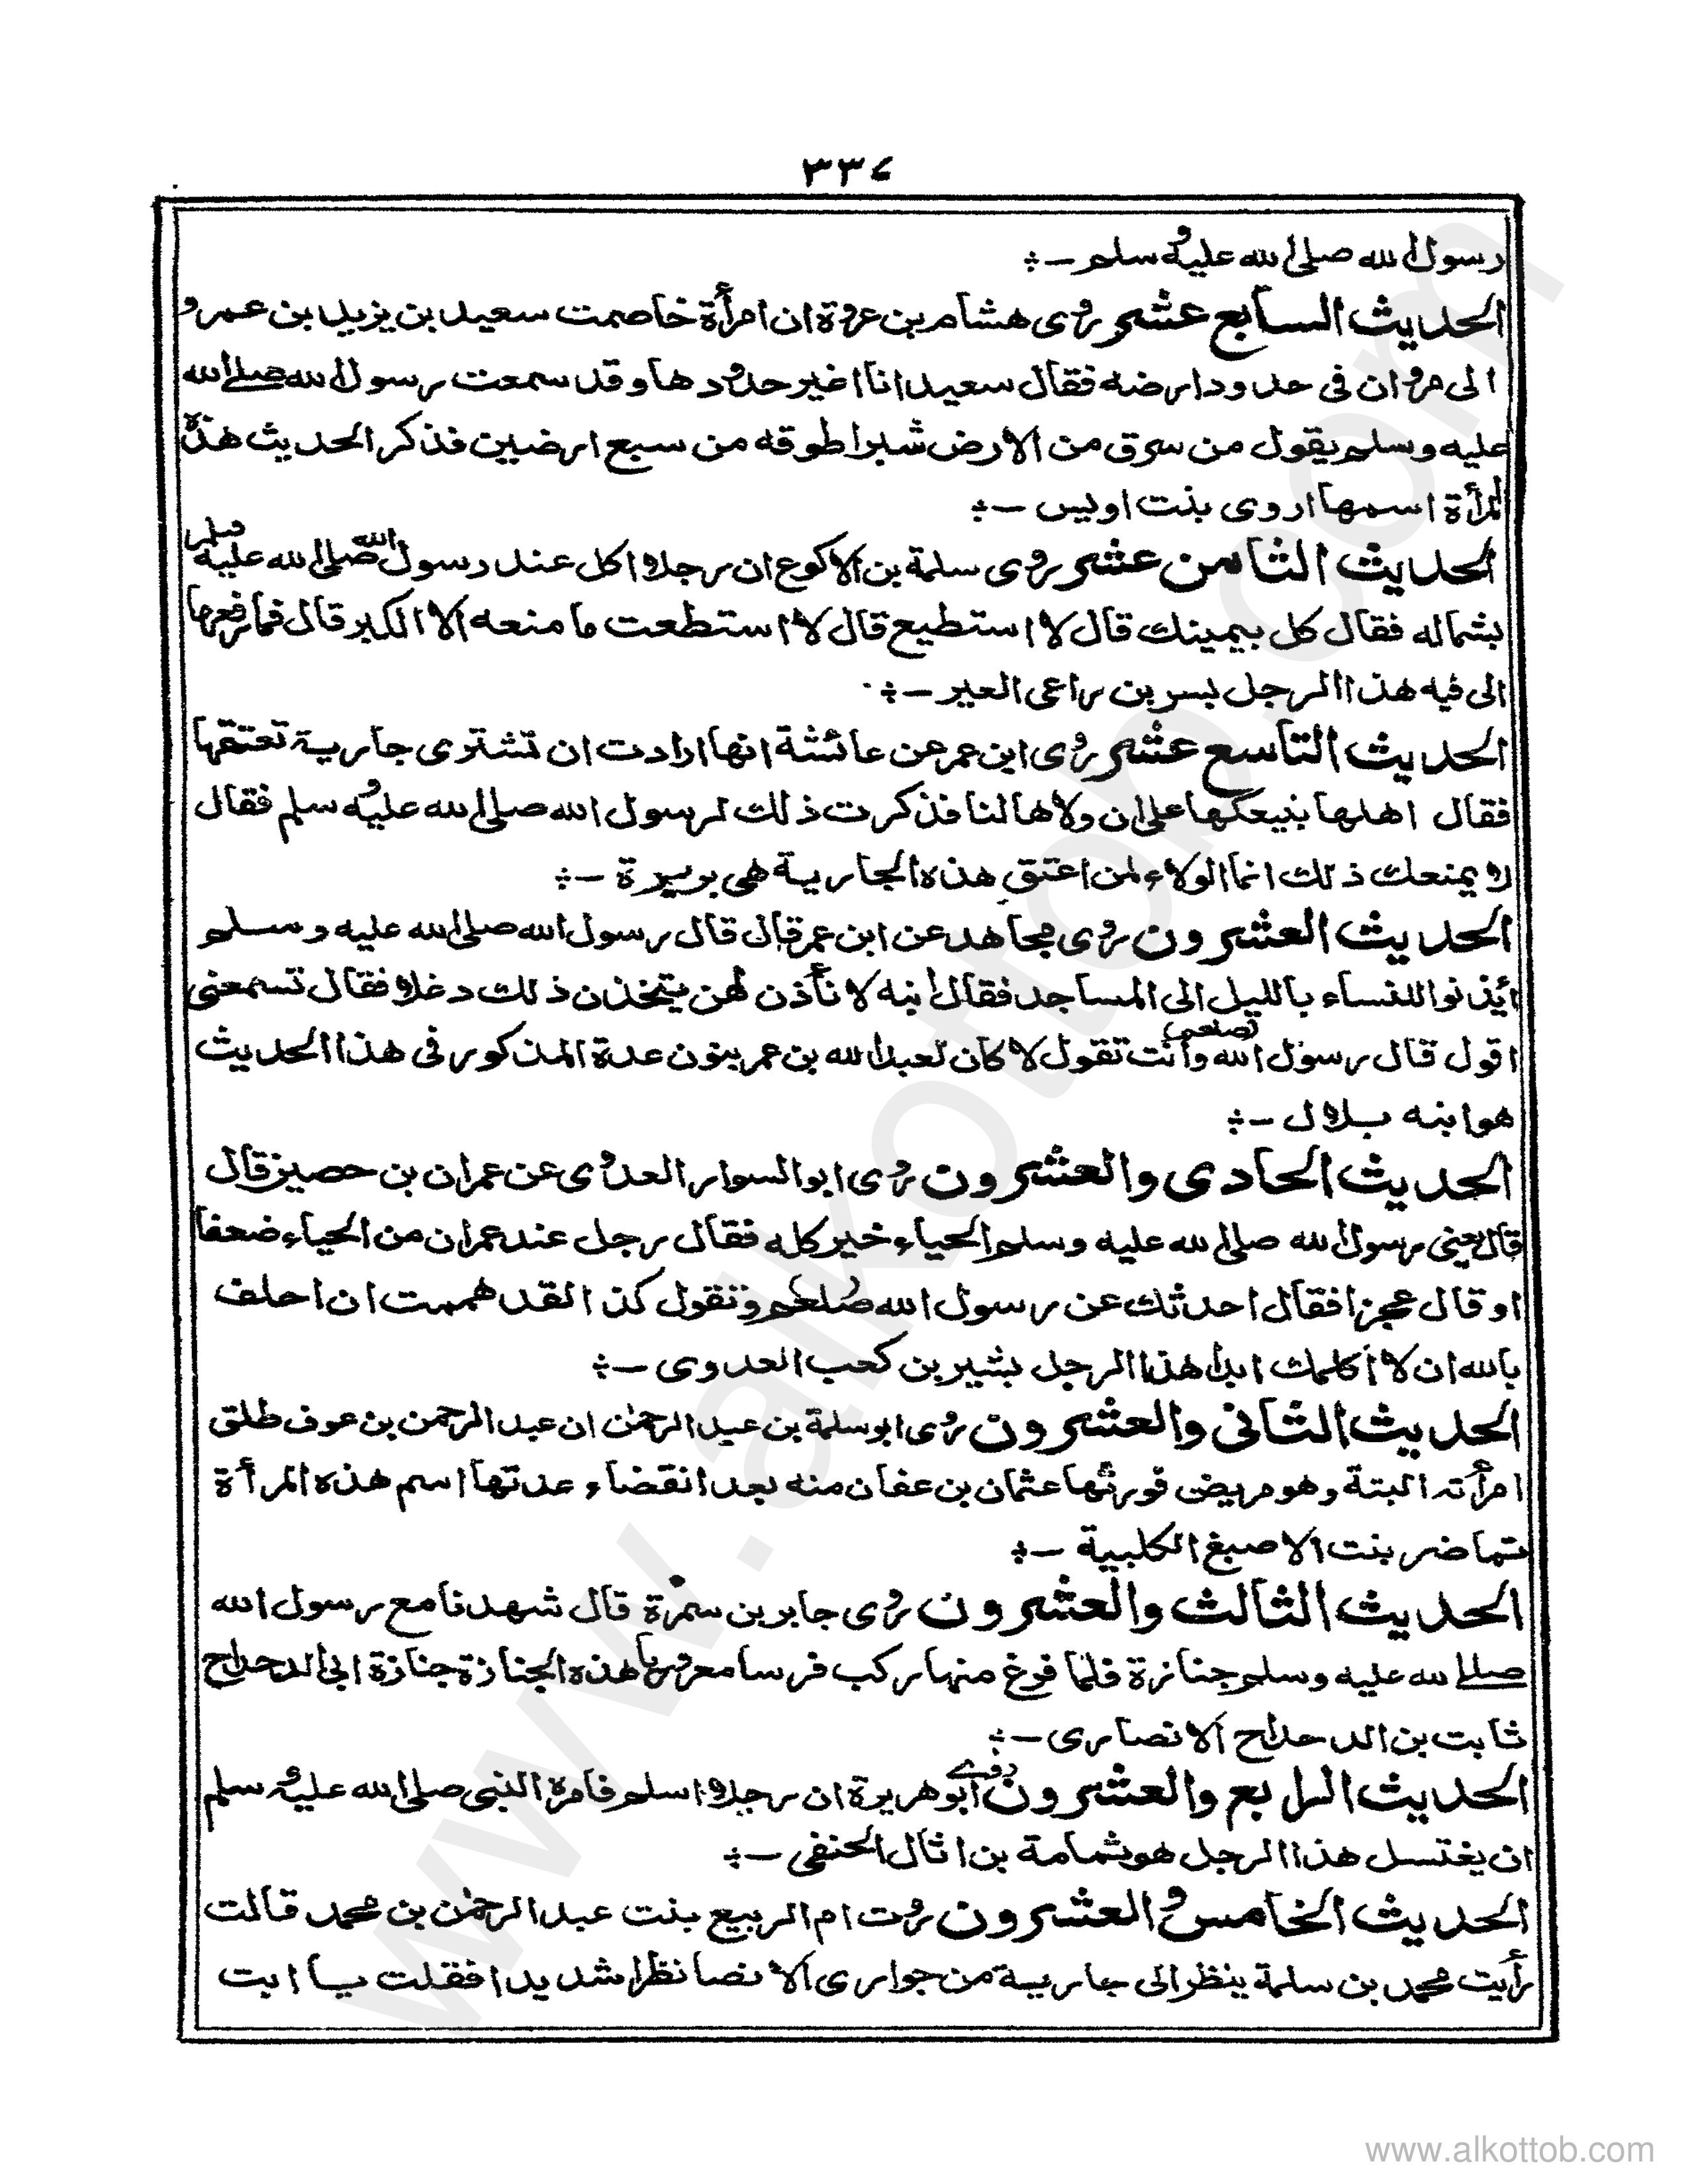 ٣٣٤
رسول الله صلى الله عليه وسلم -:
الحديث السابع عشر روى هشام بن عروة ان امرأة خاصمت سعيد بن يزيد بن عمرو
الى مروان فى حدود ارضه فقال سعيد انا اغير حدودها وقد سمعت رسول الله صلى الله
عليه وسلم يقول من سرق من الارض شبرا طوقه من سبع ارضين فذكر الحديث هذه
المرأة اسمها اروى بنت اويس -:
الحديث الثامن عشر روى سلمة بن الاكوع ان رجلا اكل عند رسول الله صلى الله عليه وسلم
بشماله فقال كل بيمينك قال لا استطيع قال لا استطعت ما منعه الا الكبر قال فما رفعها
الى فيه هذا الرجل بسر بن راعى العير -:
الحديث التاسع عشر روى ابن عمر عن عائشة انها ارادت ان تشترى جارية تعتقها
فقال اهلها نبيعكها على ان ولاها لنا فذكرت ذلك لرسول الله صلى الله عليه وسلم فقال
لا يمنعك ذلك انما الولاء لمن اعتق هذه الجارية هى بريرة -:
الحديث العشرون روى مجاهد عن ابن عمر قال قال رسول الله صلى الله عليه وسلم
ائذنوا للنساء بالليل الى المساجد فقال ابنه لا نأذن لهن يتخذن ذلك دغلا فقال تسمعنى
اقول قال رسول الله (صلعم) وأنت تقول لا كان لعبد الله بن عمر بنون عدة المذكور فى هذا الحديث
هو ابنه بلال -:
الحديث الحادى والعشرون روى ابو السوار العدوى عن عمران بن حصين قال
قال يعنى رسول الله صلى الله عليه وسلم الحياء خير كله فقال رجل عند عمران من الحياء ضعفا
او قال عجزا فقال احدثك عن رسول الله (صلعم) وتقول كذا لقد هممت ان احلف
بالله ان لا أكلمك ابدا هذا الرجل بشير بن كعب العدوى -:
الحديث الثانى والعشرون روى ابو سلمة بن عبد الرحمن ان عبد الرحمن بن عوف طلق
امرأته البتة وهو مريض فورثها عثمان بن عفان منه بعد انقضاء عدتها اسم هذه المرأة
تماضر بنت الاصبغ الكلبية -:
الحديث الثالث والعشرون روى جابر بن سمرة قال شهدنا مع رسول الله
صلى الله عليه وسلم جنازة فلما فرغ منها ركب فرسا معروريا هذه الجنازة جنازة ابى الدحداح
ثابت بن الدحداح الانصارى -:
الحديث الرابع والعشرون روى أبو هريرة ان رجلا اسلم فامره النبى صلى الله عليه وسلم
ان يغتسل هذا الرجل هو ثمامة بن اثال الحنفى -:
الحديث الخامس والعشرون روت ام الربيع بنت عبد الرحمن بن محمد قالت
رأيت محمد بن سلمة ينظر الى جارية من جوارى الانصا نظرا شديدا فقلت يا ابت
www.alkottob.com